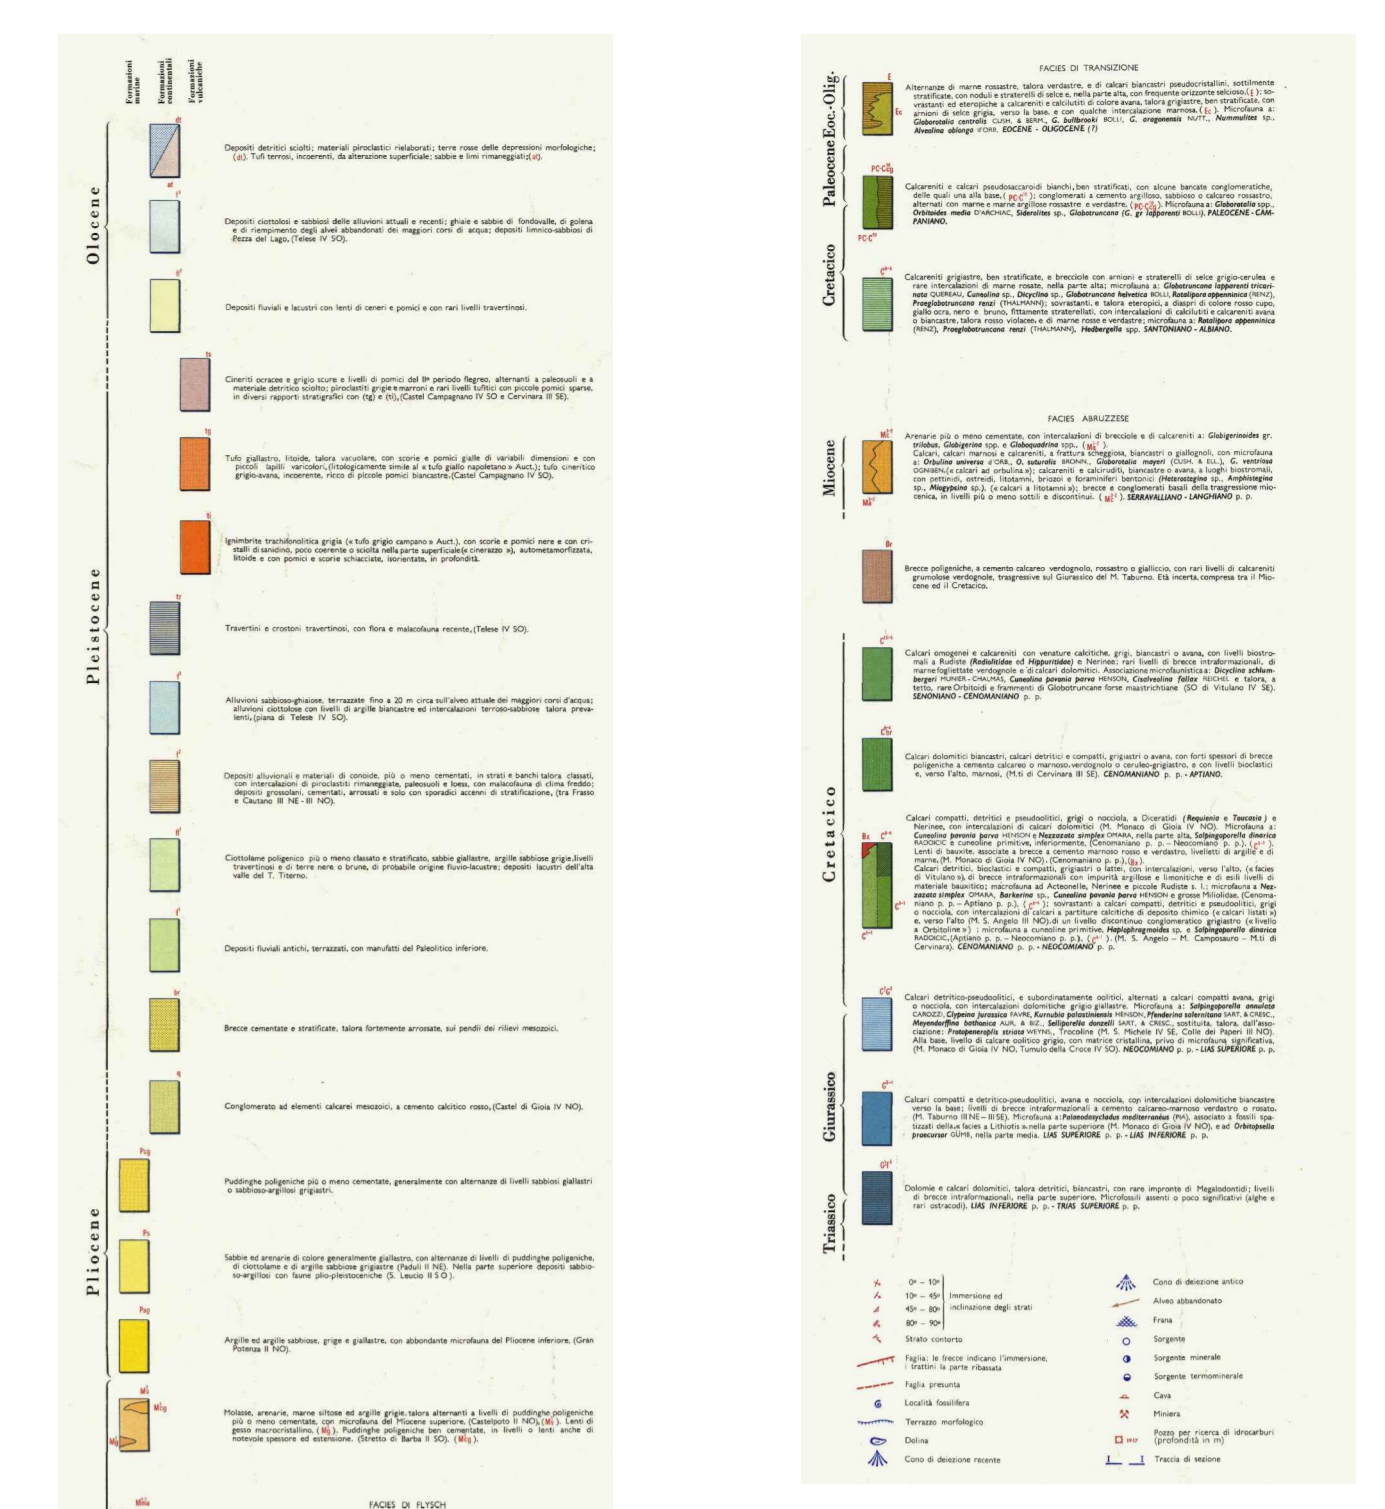 Formazioni marine
Formazioni continentali
Formazioni vulcaniche
Olocene
Pleistocene
Pliocene
dt
Depositi detritici sciolti; materiali piroclastici rielaborati; terre rosse delle depressioni morfologiche;
(dt). Tufi terrosi, incoerenti, da alterazione superficiale; sabbie e limi rimaneggiati;(at).
at
Depositi ciottolosi e sabbiosi delle alluvioni attuali e recenti; ghiaie e sabbie di fondovalle, di golena
e di riempimento degli alvei abbandonati dei maggiori corsi di acqua; depositi limnico-sabbiosi di
Pezza del Lago, (Telese IV SO).
Depositi fluviali e lacustri con lenti di ceneri e pomici e con rari livelli travertinosi.
ts
Cineriti ocracee e grigio scure e livelli di pomici del IIº periodo flegreo, alternanti a paleosuoli e a
materiale detritico sciolto; piroclastiti grigie e marroni e rari livelli tufitici con piccole pomici sparse,
in diversi rapporti stratigrafici con (tg) e (ti), (Castel Campagnano IV SO e Cervinara III SE).
tg
Tufo giallastro, litoide, talora vacuolare, con scorie e pomici gialle di variabili dimensioni e con
piccoli lapilli varicolori, (litologicamente simile al « tufo giallo napoletano » Auct.); tufo cineritico
grigio-avana, incoerente, ricco di piccole pomici biancastre, (Castel Campagnano IV SO).
ti
Ignimbrite trachifonolitica grigia (« tufo grigio campano » Auct.), con scorie e pomici nere e con cri-
stalli di sanidino, poco coerente o sciolta nella parte superficiale(« cinerazzo »), autometamorfizzata,
litoide e con pomici e scorie schiacciate, isorientate, in profondità.
tr
Travertini e crostoni travertinosi, con flora e malacofauna recente, (Telese IV SO).
Alluvioni sabbioso-ghiaiose, terrazzate fino a 20 m circa sull'alveo attuale dei maggiori corsi d'acqua;
alluvioni ciottolose con livelli di argille biancastre ed intercalazioni terroso-sabbiose talora preva-
lenti, (piana di Telese IV SO).
Depositi alluvionali e materiali di conoide, più o meno cementati, in strati e banchi talora classati,
con intercalazioni di piroclastiti rimaneggiate, paleosuoli e loess, con malacofauna di clima freddo;
depositi grossolani, cementati, arrossati e solo con sporadici accenni di stratificazione, (tra Frasso
e Cautano III NE - III NO).
Ciottolame poligenico più o meno classato e stratificato, sabbie giallastre, argille sabbiose grigie, livelli
travertinosi e di terre nere o brune, di probabile origine fluvio-lacustre; depositi lacustri dell'alta
valle del T. Titerno.
Depositi fluviali antichi, terrazzati, con manufatti del Paleolitico inferiore.
br
Brecce cementate e stratificate, talora fortemente arrossate, sui pendii dei rilievi mesozoici.
q
Conglomerato ad elementi calcarei mesozoici, a cemento calcitico rosso, (Castel di Gioia IV NO).
Pcg
Puddinghe poligeniche più o meno cementate, generalmente con alternanze di livelli sabbiosi giallastri
o sabbioso-argillosi grigiastri.
Ps
Sabbie ed arenarie di colore generalmente giallastro, con alternanze di livelli di puddinghe poligeniche,
di ciottolame e di argille sabbiose grigiastre (Paduli II NE). Nella parte superiore depositi sabbio-
so-argillosi con faune plio-pleistoceniche (S. Leucio II S O ).
Pag
Argille ed argille sabbiose, grige e giallastre, con abbondante microfauna del Pliocene inferiore, (Gran
Potenza II NO).
Molasse, arenarie, marne siltose ed argille grigie, talora alternanti a livelli di puddinghe poligeniche
più o meno cementate, con microfauna del Miocene superiore, (Castelpoto II NO), Lenti di
gesso macrocristallino, Puddinghe poligeniche ben cementate, in livelli o lenti anche di
notevole spessore ed estensione. (Stretto di Barba II SO),
FACIES DI FLYSCH
Eoc.-Olig.
Paleocene
Cretacico
FACIES DI TRANSIZIONE
E
Ec
Alternanze di marne rossastre, talora verdastre, e di calcari biancastri pseudocristallini, sottilmente
stratificate, con noduli e straterelli di selce e, nella parte alta, con frequente orizzonte selcioso, (E); so-
vrastanti ed eteropiche a calcareniti e calcilutiti di colore avana, talora grigiastre, ben stratificate, con
arnioni di selce grigia, verso la base, e con qualche intercalazione marnosa, (Ec). Microfauna a:
Globorotalia centralis CUSH. & BERM., G. bullbrooki BOLLI, G. aragonensis NUTT., Nummulites sp.,
Alveolina oblonga d'ORB. EOCENE - OLIGOCENE (?)
Calcareniti e calcari pseudosaccaroidi bianchi, ben stratificati, con alcune bancate conglomeratiche,
delle quali una alla base, conglomerati a cemento argilloso, sabbioso o calcareo rossastro,
alternati con marne e marne argillose rossastre e verdastre, Microfauna a: Globorotalia spp.,
Orbitoides media D'ARCHIAC, Siderolites sp., Globotruncana (G. gr lapparenti BOLLI). PALEOCENE - CAM-
PANIANO.
Calcareniti grigiastre, ben stratificate, e brecciole con arnioni e straterelli di selce grigio-cerulea e
rare intercalazioni di marne rosate, nella parte alta; microfauna a: Globotruncana lapparenti tricari-
nata QUEREAU, Cuneolina sp., Dicyclina sp., Globotruncana helvetica BOLLI, Rotalipora appenninica (RENZ),
Praeglobotruncana renzi (THALMANN); sovrastanti, e talora eteropici, a diaspri di colore rosso cupo,
giallo ocra, nero e bruno, fittamente straterellati, con intercalazioni di calcilutiti e calcareniti avana
o biancastre, talora rosso violacee, e di marne rosse e verdastre; microfauna a: Rotalipora appenninica
(RENZ), Praeglobotruncana renzi (THALMANN), Hedbergella spp. SANTONIANO - ALBIANO.
FACIES ABRUZZESE
Miocene
Arenarie più o meno cementate, con intercalazioni di brecciole e di calcareniti a: Globigerinoides gr.
trilobus, Globigerina spp. e Globoquadrina spp.,
Calcari, calcari marnosi e calcareniti, a frattura scheggiosa, biancastri o giallognoli, con microfauna
a: Orbulina universa d'ORB., O. suturalis BRONN., Globorotalia mayeri (CUSH. & ELL.), G. ventriosa
OGNIBEN, (« calcari ad orbulina »); calcareniti e calciruditi, biancastre o avana, a luoghi biostromali,
con pettinidi, ostreidi, litotamni, briozoi e foraminiferi bentonici (Heterostegina sp., Amphistegina
sp., Miogypsina sp.), (« calcari a litotamni »); brecce e conglomerati basali della trasgressione mio-
cenica, in livelli più o meno sottili e discontinui. SERRAVALLIANO - LANGHIANO p. p.
Br
Brecce poligeniche, a cemento calcareo verdognolo, rossastro o gialliccio, con rari livelli di calcareniti
grumolose verdognole, trasgressive sul Giurassico del M. Taburno. Età incerta, compresa tra il Mio-
cene ed il Cretacico.
Cretacico
Calcari omogenei e calcareniti con venature calcitiche, grigi, biancastri o avana, con livelli biostro-
mali a Rudiste (Radiolitidae ed Hippuritidae) e Nerinee; rari livelli di brecce intraformazionali, di
marne fogliettate verdognole e di calcari dolomitici. Associazione microfaunistica a: Dicyclina schlum-
bergeri MUNIER - CHALMAS, Cuneolina pavonia parva HENSON, Cisalveolina fallax REICHEL e talora, a
tetto, rare Orbitoidi e frammenti di Globotruncane forse maastrichtiane (SO di Vitulano IV SE).
SENONIANO - CENOMANIANO p. p.
Calcari dolomitici biancastri, calcari detritici e compatti, grigiastri o avana, con forti spessori di brecce
poligeniche a cemento calcareo o marnoso, verdognolo o ceruleo-grigiastro, e con livelli bioclastici
e, verso l'alto, marnosi, (M.ti di Cervinara III SE). CENOMANIANO p. p. - APTIANO.
Bx
Calcari compatti, detritici e pseudoolitici, grigi o nocciola, a Diceratidi (Requienia e Toucasia) e
Nerinee, con intercalazioni di calcari dolomitici (M. Monaco di Gioia IV NO). Microfauna a:
Cuneolina pavonia parva HENSON e Nezzazata simplex OMARA, nella parte alta, Salpingoporella dinarica
RADOICIC e cuneoline primitive, inferiormente, (Cenomaniano p. p. – Neocomiano p. p.),
Lenti di bauxite, associate a brecce a cemento marnoso rosso e verdastro, livelletti di argille e di
marne, (M. Monaco di Gioia IV NO). (Cenomaniano p. p.), (Bx).
Calcari detritici, bioclastici e compatti, grigiastri o lattei, con intercalazioni, verso l'alto, (« facies
di Vitulano »), di brecce intraformazionali con impurità argillose e limonitiche e di esili livelli di
materiale bauxitico; macrofauna ad Acteonelle, Nerinee e piccole Rudiste s. l.; microfauna a Nez-
zazata simplex OMARA, Barkerina sp., Cuneolina pavonia parva HENSON e grosse Miliolidae, (Cenoma-
niano p. p. – Aptiano p. p.), sovrastanti a calcari compatti, detritici e pseudoolitici, grigi
o nocciola, con intercalazioni di calcari a partiture calcitiche di deposito chimico (« calcari listati »)
e, verso l'alto (M. S. Angelo III NO), di un livello discontinuo conglomeratico grigiastro (« livello
a Orbitoline ») ; microfauna a cuneoline primitive, Haplophragmoides sp. e Salpingoporella dinarica
RADOICIC, (Aptiano p. p. – Neocomiano p. p.), (M. S. Angelo – M. Camposauro – M.ti di
Cervinara). CENOMANIANO p. p. - NEOCOMIANO p. p.
Calcari detritico-pseudoolitici, e subordinatamente oolitici, alternati a calcari compatti avana, grigi
o nocciola, con intercalazioni dolomitiche grigio giallastre. Microfauna a: Salpingoporella annulata
CAROZZI, Clypeina jurassica FAVRE, Kurnubia palastiniensis HENSON, Pfenderina salernitana SART. & CRESC.,
Meyendorffina bathonica AUR. & BIZ., Selliporella donzelli SART. & CRESC., sostituita, talora, dall'asso-
ciazione: Protopeneroplis striata WEYNS., Trocoline (M. S. Michele IV SE, Colle dei Paperi III NO).
Alla base, livello di calcare oolitico grigio, con matrice cristallina, privo di microfauna significativa,
(M. Monaco di Gioia IV NO, Tumulo della Croce IV SO). NEOCOMIANO p. p. - LIAS SUPERIORE p. p.
Giurassico
Calcari compatti e detritico-pseudoolitici, avana e nocciola, con intercalazioni dolomitiche biancastre
verso la base; livelli di brecce intraformazionali a cemento calcareo-marnoso verdastro o rosato.
(M. Taburno III NE – III SE). Microfauna a: Palaeodasycladus mediterraneus (PIA), associato a fossili spa-
tizzati della « facies a Lithiotis » nella parte superiore (M. Monaco di Gioia IV NO), e ad Orbitopsella
praecursor GÜMB, nella parte media. LIAS SUPERIORE p. p. - LIAS INFERIORE p. p.
Triassico
Dolomie e calcari dolomitici, talora detritici, biancastri, con rare impronte di Megalodontidi; livelli
di brecce intraformazionali, nella parte superiore. Microfossili assenti o poco significativi (alghe e
rari ostracodi). LIAS INFERIORE p. p. - TRIAS SUPERIORE p. p.
0º – 10º
10º – 45º
45º – 80º
80º – 90º
Immersione ed
inclinazione degli strati
Strato contorto
Faglia: le frecce indicano l'immersione,
i trattini la parte ribassata
Faglia presunta
Località fossilifera
Terrazzo morfologico
Dolina
Cono di deiezione recente
Cono di deiezione antico
Alveo abbandonato
Frana
Sorgente
Sorgente minerale
Sorgente termominerale
Cava
Miniera
Pozzo per ricerca di idrocarburi
(profondità in m)
Traccia di sezione